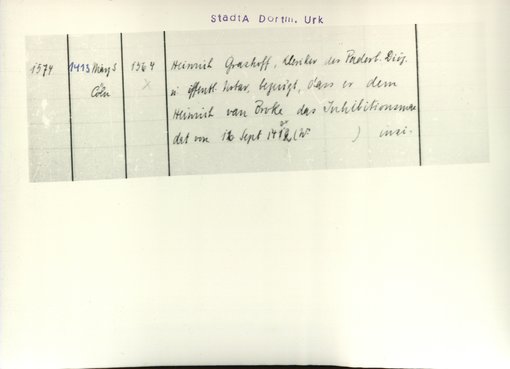 StadtA Dortm. Urk
1574 1413 März 3 1564 Heinrich Grashoff, Kleriker des Paderb. Diöz.
Cöln X u. öffentl. Notar, bezeugt, dass er dem
Heinrich van Broke das Inhibitionsman
dat von 12 Sept 1412 ( ) insi-